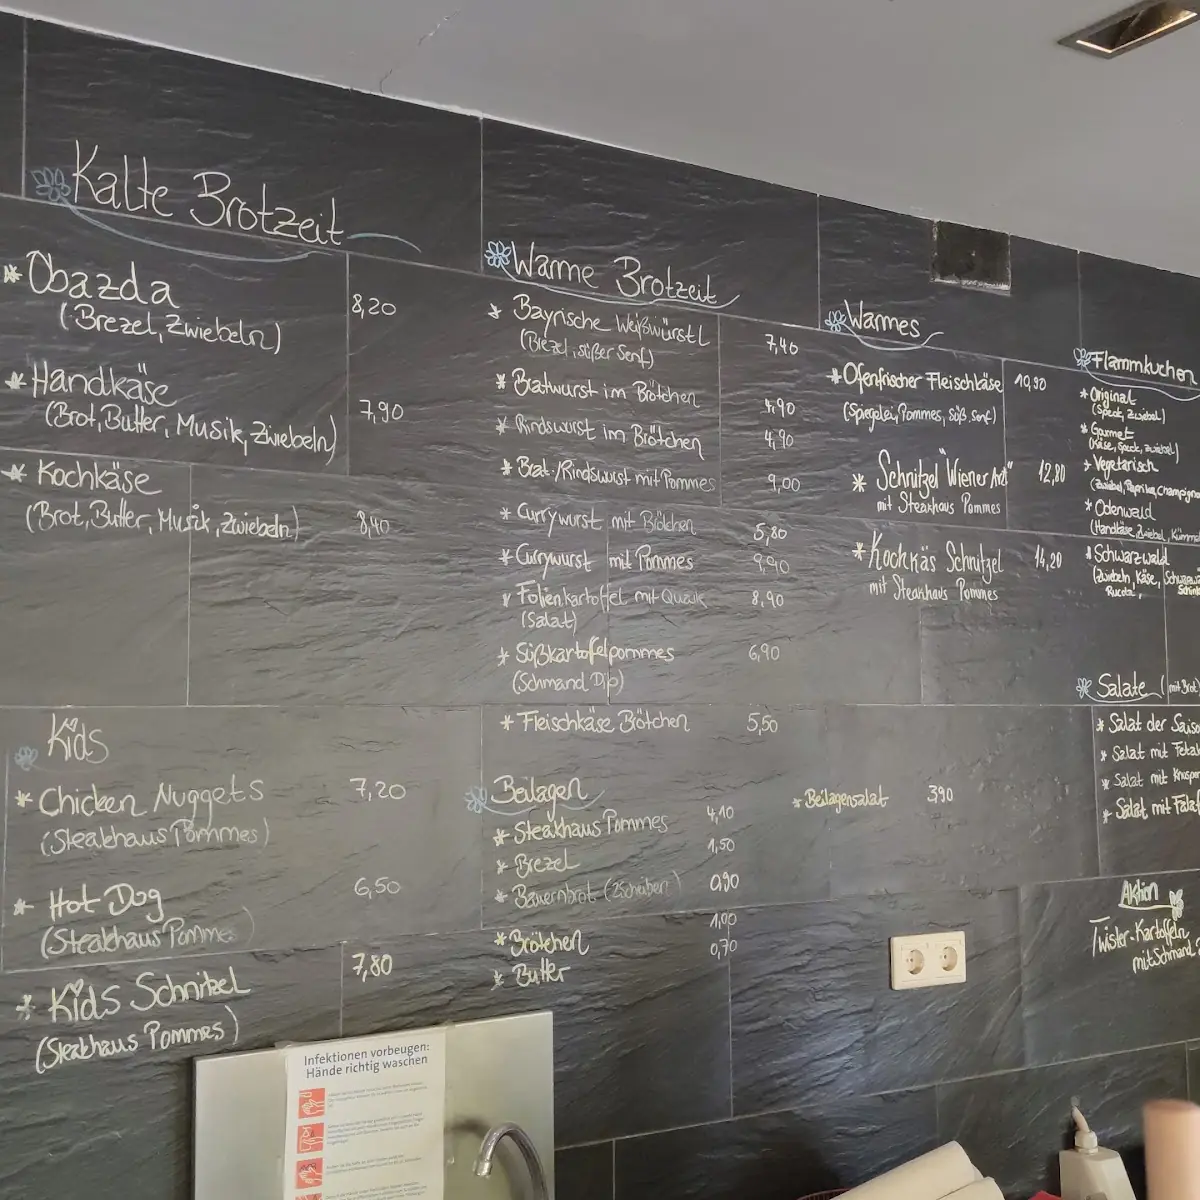 Kalte Brotzeit
* Obazda 8,20
(Brezel, Zwiebeln)
* Handkäse 7,90
(Brot, Butter, Musik, Zwiebeln)
* Kochkäse
(Brot, Butter, Musik, Zwiebeln) 8,40
Kids
* Chicken Nuggets 7,20
(Steakhaus Pommes)
* Hot Dog 6,50
(Steakhaus Pommes)
* Kids Schnitzel 7,80
(Steakhaus Pommes)
Warme Brotzeit
* Bayrische Weißwürstl 7,40
(Brezel, süßer Senf)
* Bratwurst im Brötchen 4,90
* Rindswurst im Brötchen 4,90
* Brat-/Rindswurst mit Pommes 9,00
* Currywurst mit Brötchen 5,80
* Currywurst mit Pommes 9,90
* Folienkartoffel mit Quark 8,90
(Salat)
* Süßkartoffelpommes 6,90
(Schmand Dip)
* Fleischkäse Brötchen 5,50
Beilagen
* Steakhaus Pommes 4,10
* Brezel 1,50
* Bauernbrot (2 Scheiben) 0,90
* Brötchen 1,00
* Butter 0,70
* Beilagensalat 3,90
Warmes
* Ofenfrischer Fleischkäse 10,90
(Spiegelei, Pommes, Süß. Senf)
* Schnitzel "Wiener Art" 12,80
mit Steakhaus Pommes
* Kochkäs Schnitzel 14,20
mit Steakhaus Pommes
Flammkuchen
* Original
(Speck, Zwiebel)
* Gourmet
(Käse, Speck, Zwiebel)
* Vegetarisch
(Zwiebel, Paprika, Champign
* Odenwald
(Handkäse, Zwiebel, Kümm
* Schwarzwald
(Zwiebeln, Käse,
Salate (mit Brot)
* Salat der Saiso
* Salat mit
* Salat mit Knusper
* Salat mit Falaf
Aktion
Twister-Kartoffeln
mit Schmand
Infektionen vorbeugen:
Hände richtig waschen